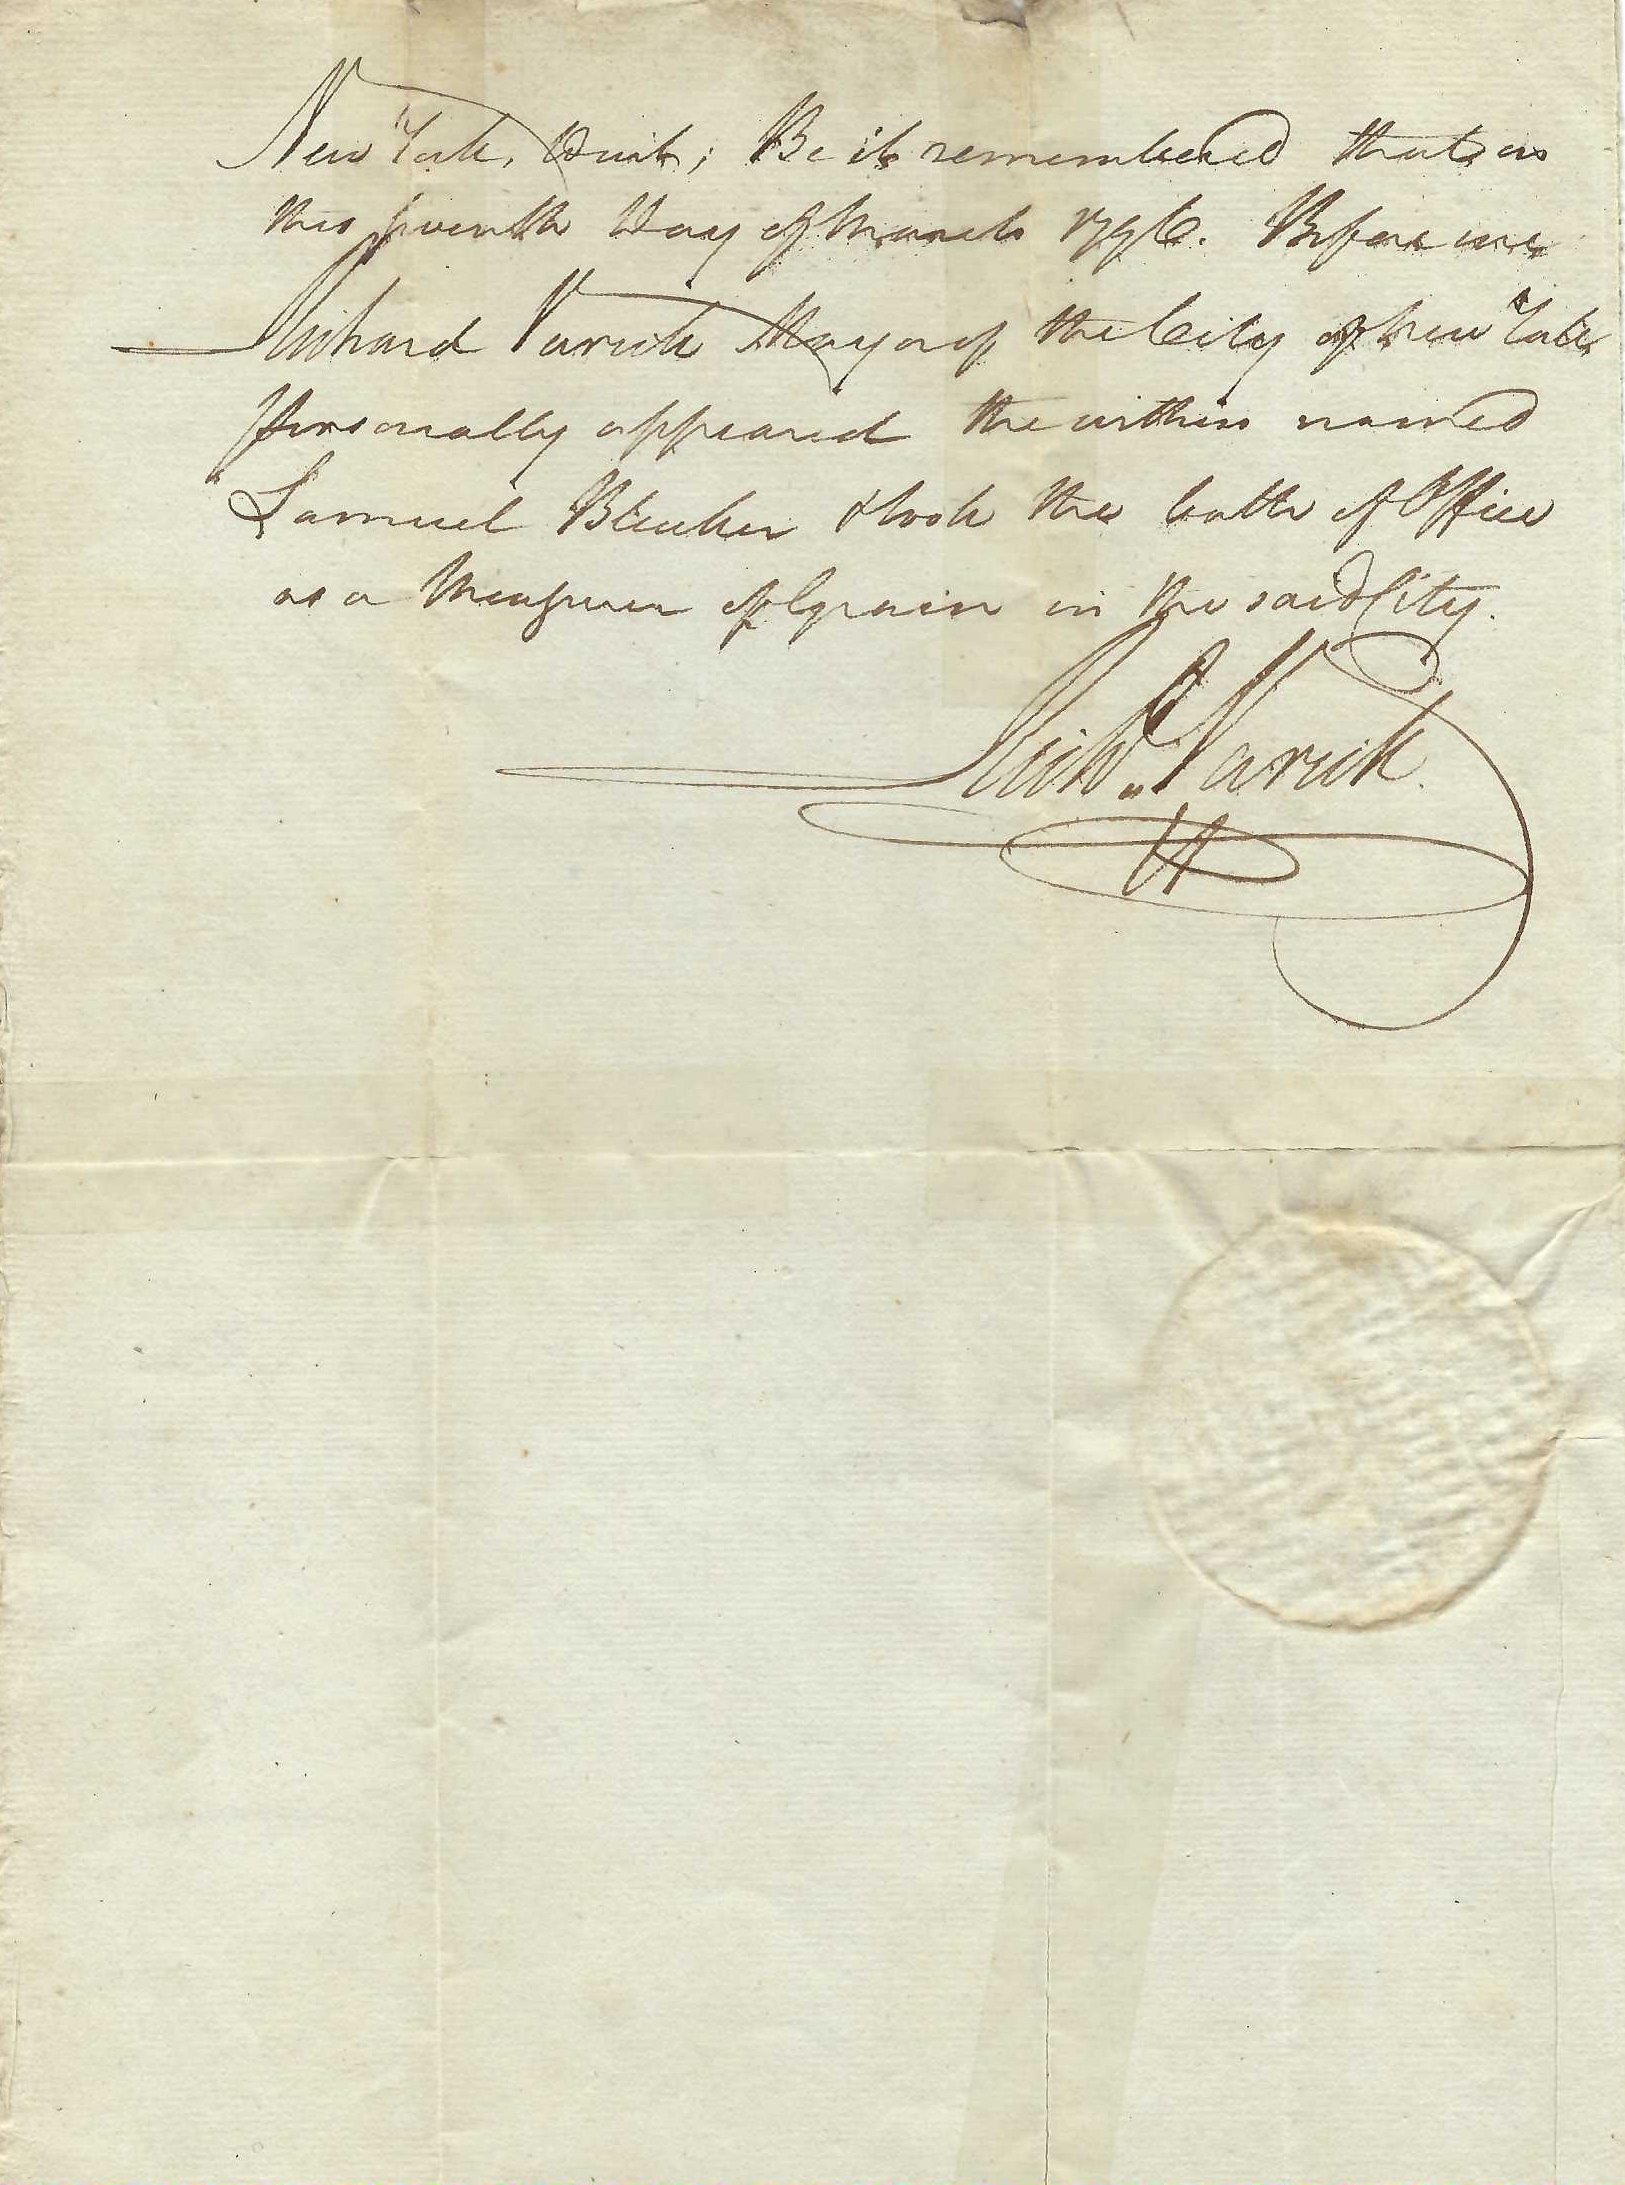 New York, Dist; Be it remembered that on
this seventh Day of March 1796. Before me
Richard Varick Mayor of the City of New York
personally appeared the within named
Samuel Bleeker & took the Oath of Office
as a Measurer of Grain in the said City.
Richd. Varick.